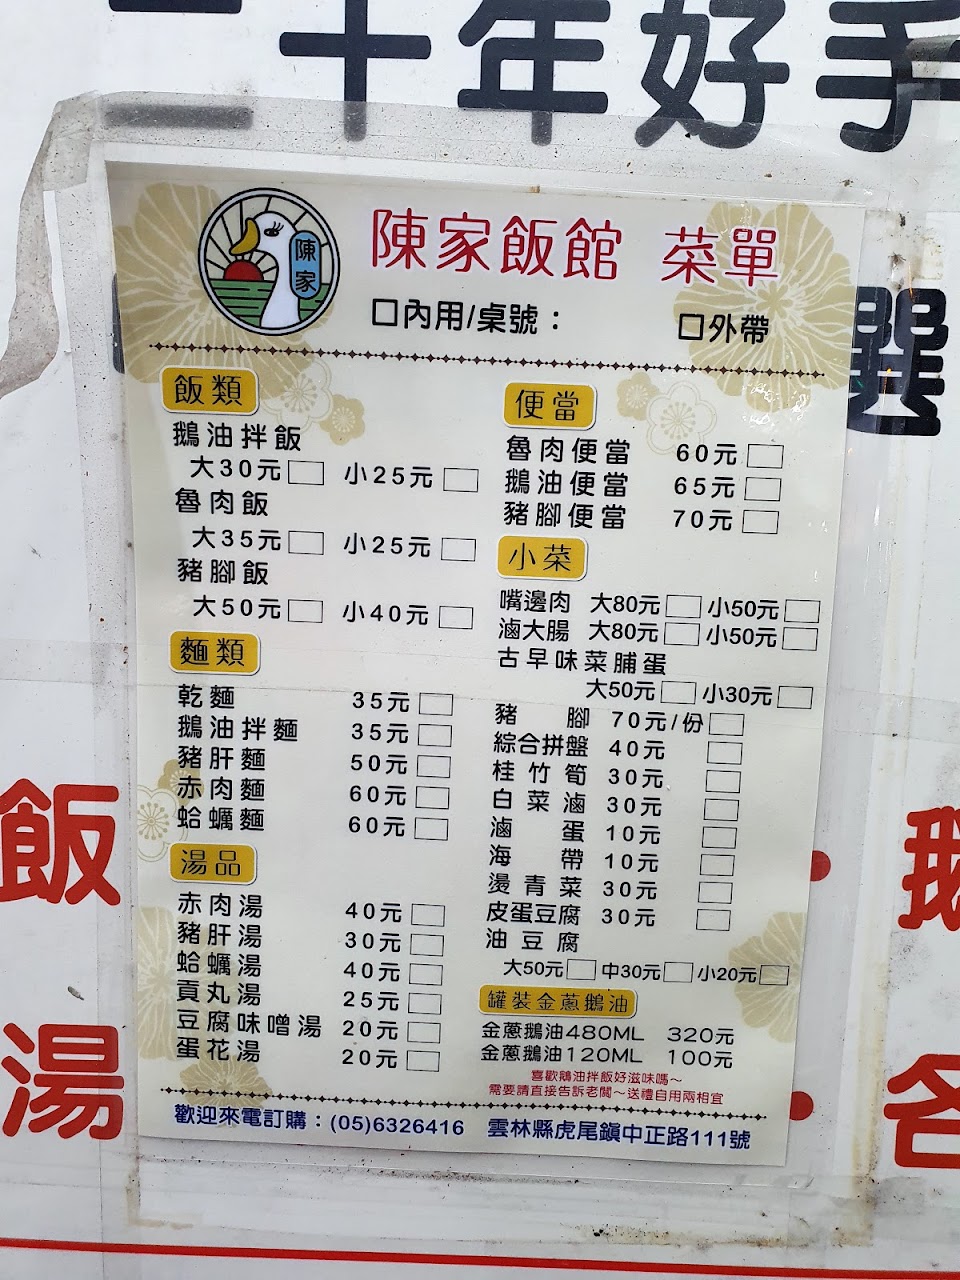 二十年好手
選
陳家
陳家飯館 菜單
□內用/桌號： □外帶
飯類
鵝油拌飯
大30元□ 小25元□
魯肉飯
大35元□ 小25元□
豬腳飯
大50元□ 小40元□
麵類
乾麵 35元□
鵝油拌麵 35元□
豬肝麵 50元□
赤肉麵 60元□
蛤蠣麵 60元□
湯品
赤肉湯 40元□
豬肝湯 30元□
蛤蠣湯 40元□
貢丸湯 25元□
豆腐味噌湯 20元□
蛋花湯 20元□
便當
魯肉便當 60元□
鵝油便當 65元□
豬腳便當 70元□
小菜
嘴邊肉 大80元□ 小50元□
滷大腸 大80元□ 小50元□
古早味菜脯蛋
大50元□ 小30元□
豬腳 70元/份□
綜合拼盤 40元□
桂竹筍 30元□
白菜滷 30元□
滷蛋 10元□
海帶 10元□
燙青菜 30元□
皮蛋豆腐 30元□
油豆腐
大50元□ 中30元□ 小20元□
罐裝金蔥鵝油
金蔥鵝油480ML 320元
金蔥鵝油120ML 100元
喜歡鵝油拌飯好滋味嗎～
需要請直接告訴老闆～送禮自用兩相宜
歡迎來電訂購：(05)6326416 雲林縣虎尾鎮中正路111號
飯
湯
鵝
各